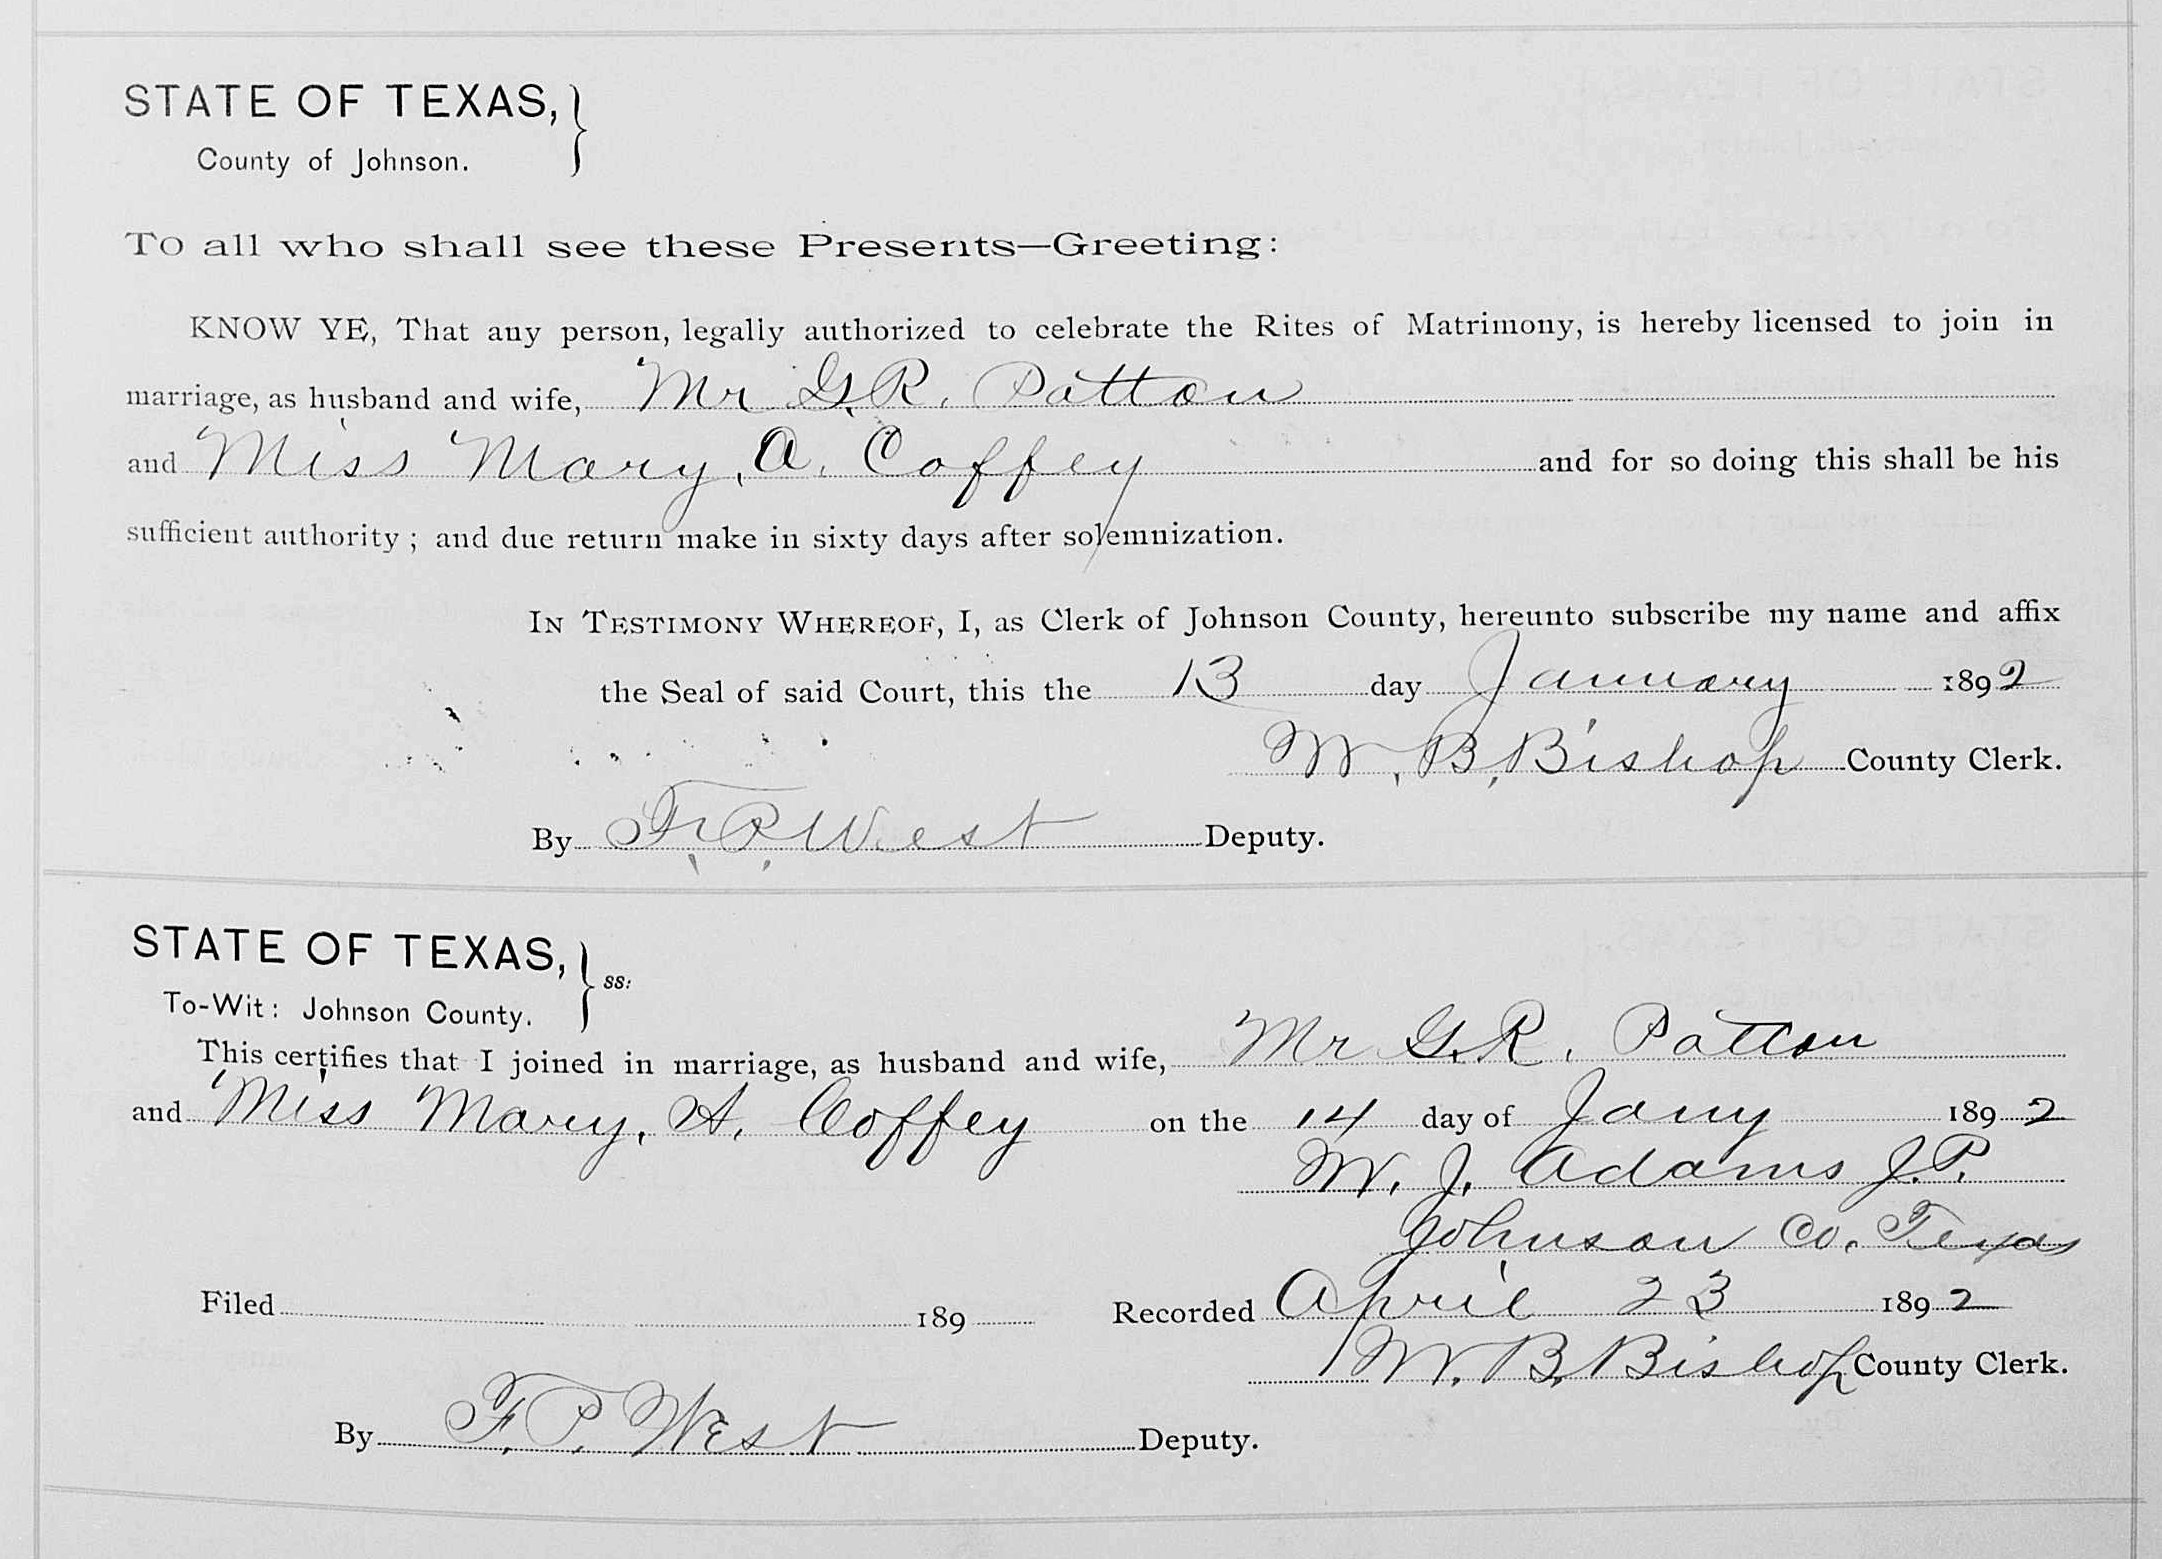 STATE OF TEXAS,
County of Johnson.
To all who shall see these Presents—Greeting:
KNOW YE, That any person, legally authorized to celebrate the Rites of Matrimony, is hereby licensed to join in
marriage, as husband and wife, Mr G.R. Patton
and Miss Mary, A. Coffey and for so doing this shall be his
sufficient authority; and due return make in sixty days after solemnization.
IN TESTIMONY WHEREOF, I, as Clerk of Johnson County, hereunto subscribe my name and affix
the Seal of said Court, this the 13 day January 1892
W. B. Bishop County Clerk.
By F. P. West Deputy.
STATE OF TEXAS, ss:
To-Wit: Johnson County.
This certifies that I joined in marriage, as husband and wife, Mr G.R. Patton
and Miss Mary, A. Coffey on the 14 day of Jany 1892
W. J. Adams J.P.
Johnson Co. Texas
Filed 189 Recorded April 23 1892
W. B. Bishop County Clerk.
By F. P. West Deputy.